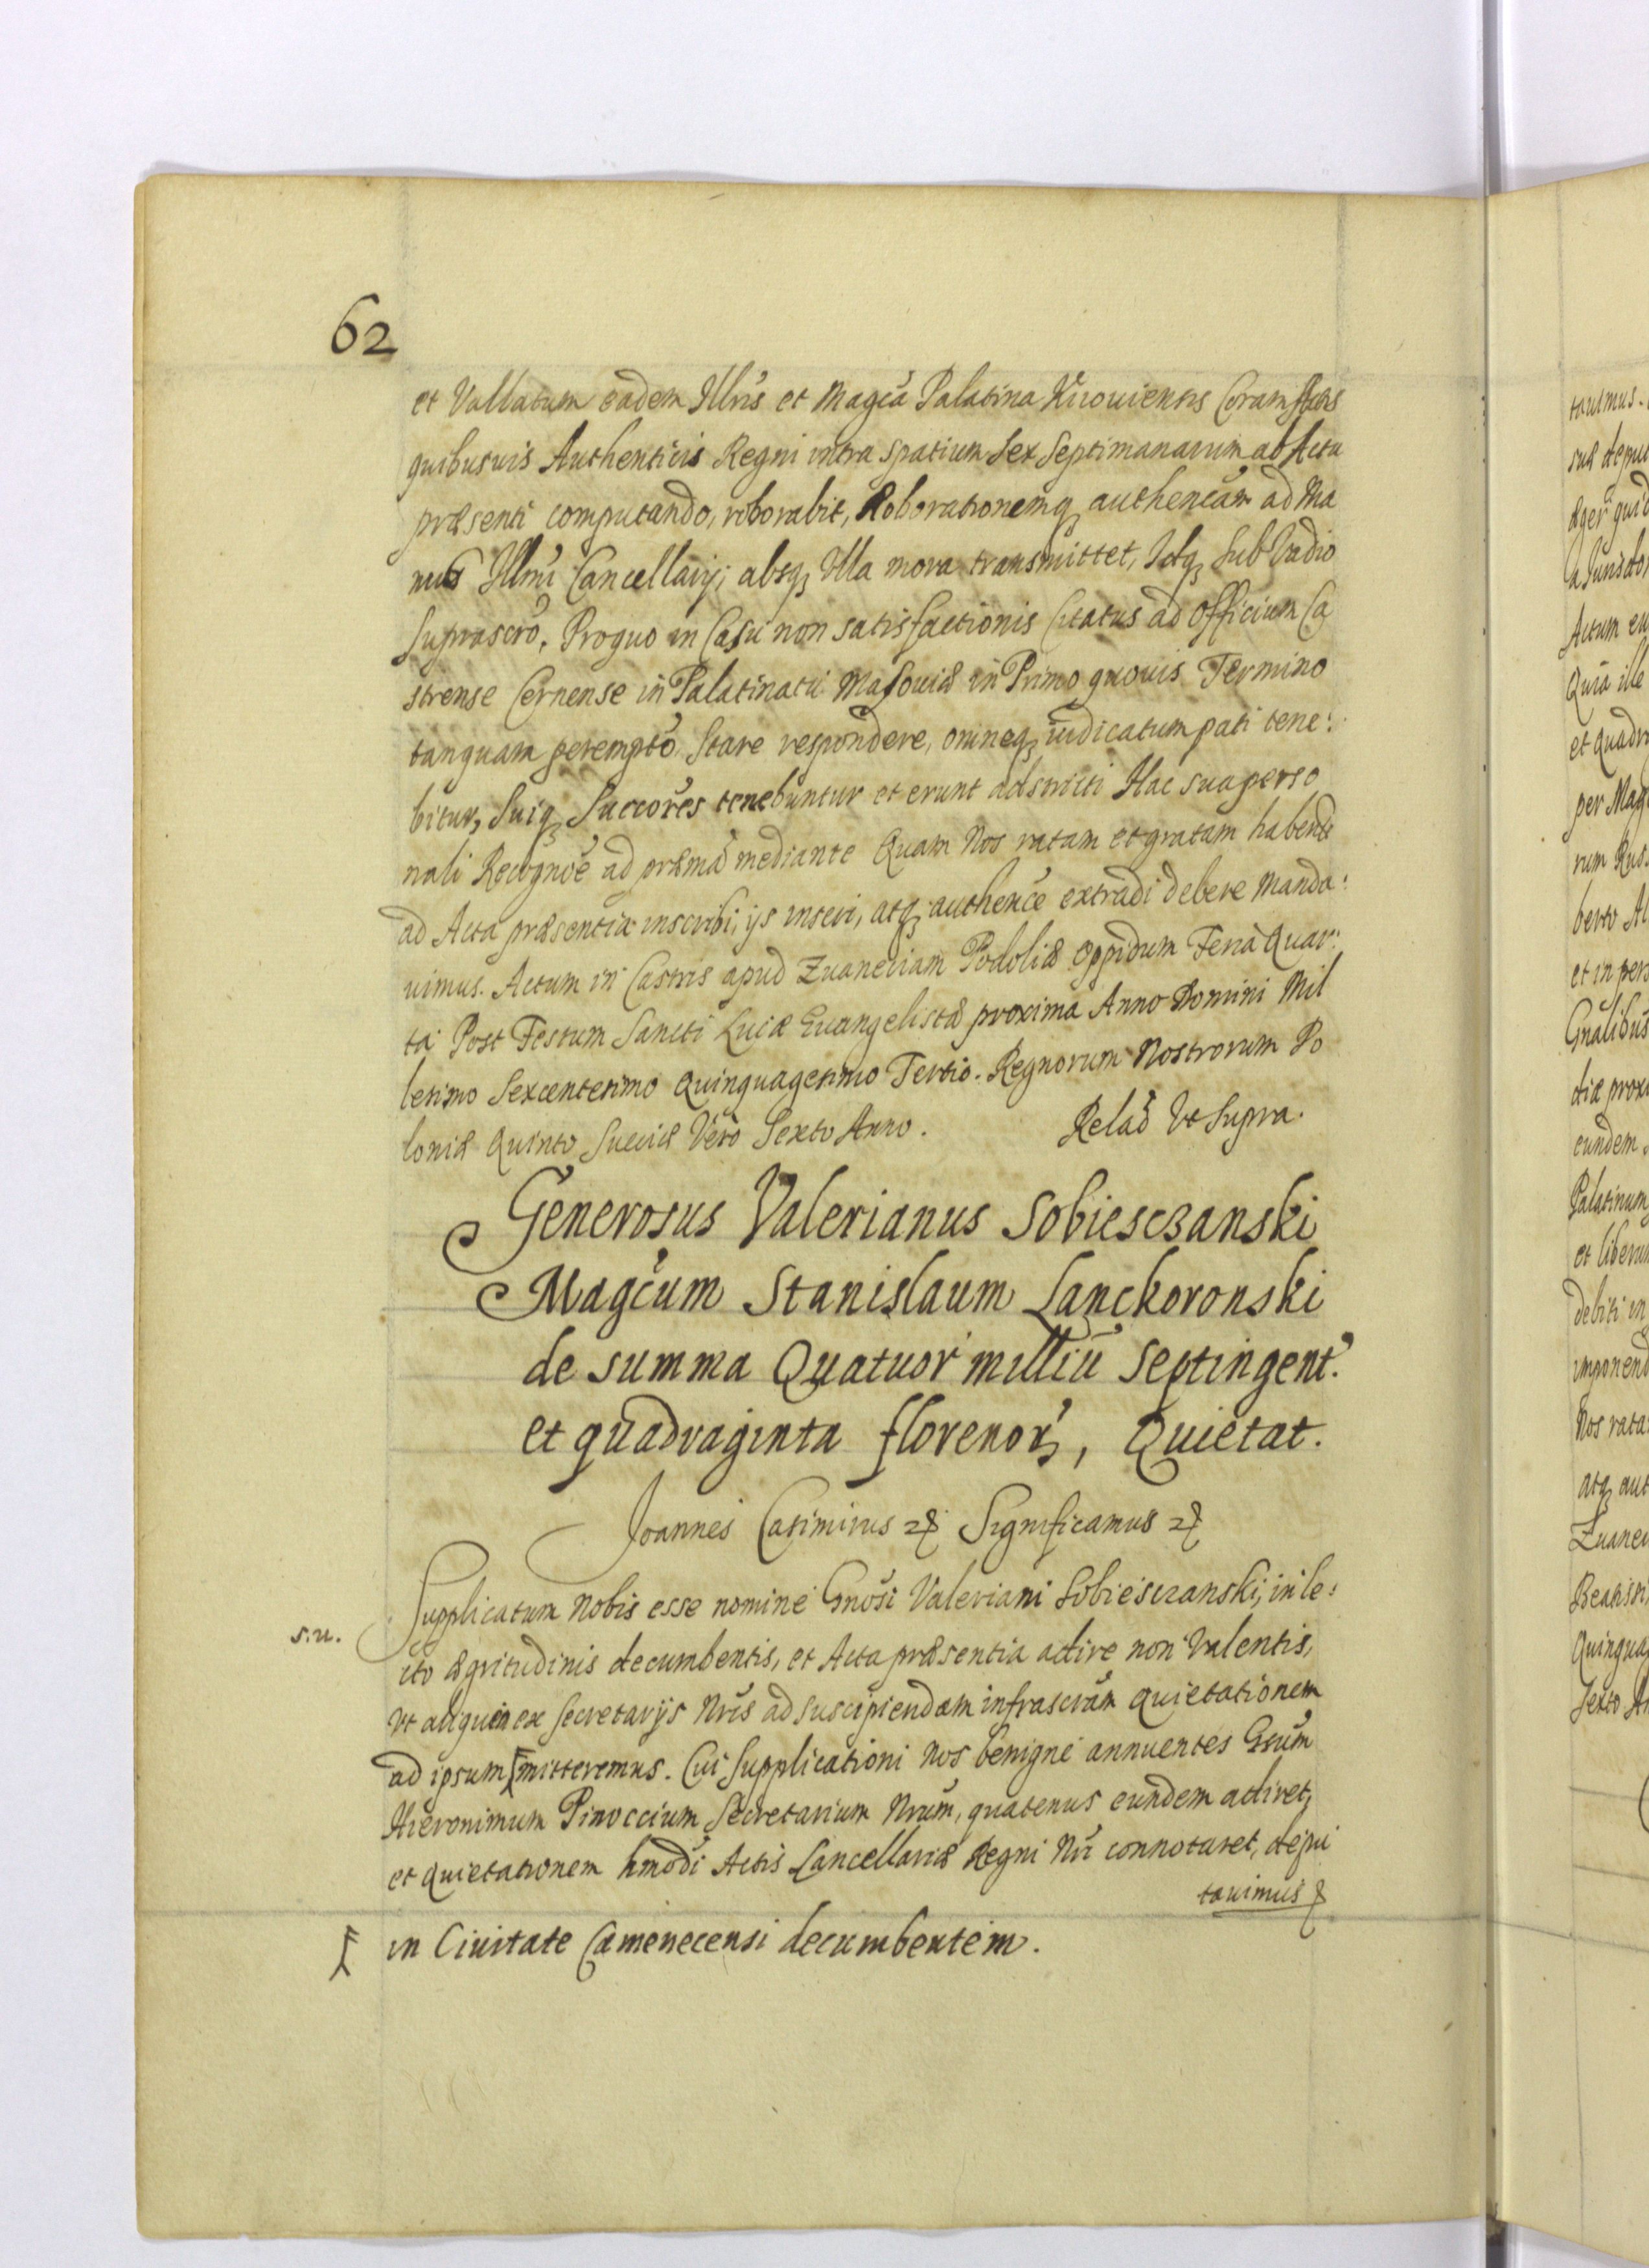 62
et Vallatum eadem Illris et Magca Palatina Kiiouiensis Coram Actis
quibusuis Authenticis Regni intra spatium Sex Septimanarum ab Actu
præsenti computando, roborabit, Roborationemq authencam ad Ma
nus Illmi Cancellarij; absq Vlla mora transmittet, Idq sub Vadio
suprascro. Proquo in Casu non satisfactionis Citatus ad Officium Ca
strense Cernense in Palatinatu Masouiæ in Primo quouis Termino
tanquam perempto Stare respondere, omneq iudicatum pati tene:
bitur, Suiq Succores tenebuntur et erunt adstricti Hac sua perso
nali Recognoe ad præma mediante Quam Nos ratam et gratam habendo
ad Acta præsentia inscribi, ijs inseri, atq authence extradi debere manda:
uimus. Actum in Castris apud Zuaneciam Podoliæ Oppidum Feria Quar:
ta Post Festum Sancti Lucæ Euangelistæ proxima Anno Domini Mil
lesimo Sexcentesimo Quinquagesimo Tertio. Regnorum Nostrorum Po
loniæ Quinto Sueciæ Vero Sexto Anno. Relao Vt Supra.
Generosus Valerianus Sobiesczanski
Magcum Stanislaum Lanckoronski
de summa Quatuor milliu Septingent.
et quadraginta florenor, Quietat.
Joannes Casimirus Significamus
s.u.
Supplicatum Nobis esse nomine Gnosi Valeriani Sobiesczanski, in le:
cto ægritudinis decumbentis, et Acta præsentia adire non Valentis,
Vt aliquem ex Secretarijs Nris ad suscipiendam infrascram Quietationem
ad ipsum mitteremus. Cui Supplicationi Nos benigne annuentes Gsum
Hieronimum Pinoccium Secretarium Nrum, quatenus eundem adiret,
et Quietationem hmodi Actis Cancellariæ Regni Nri connotaret, depu
tauimus
in Ciuitate Camenecensi decumbentem.